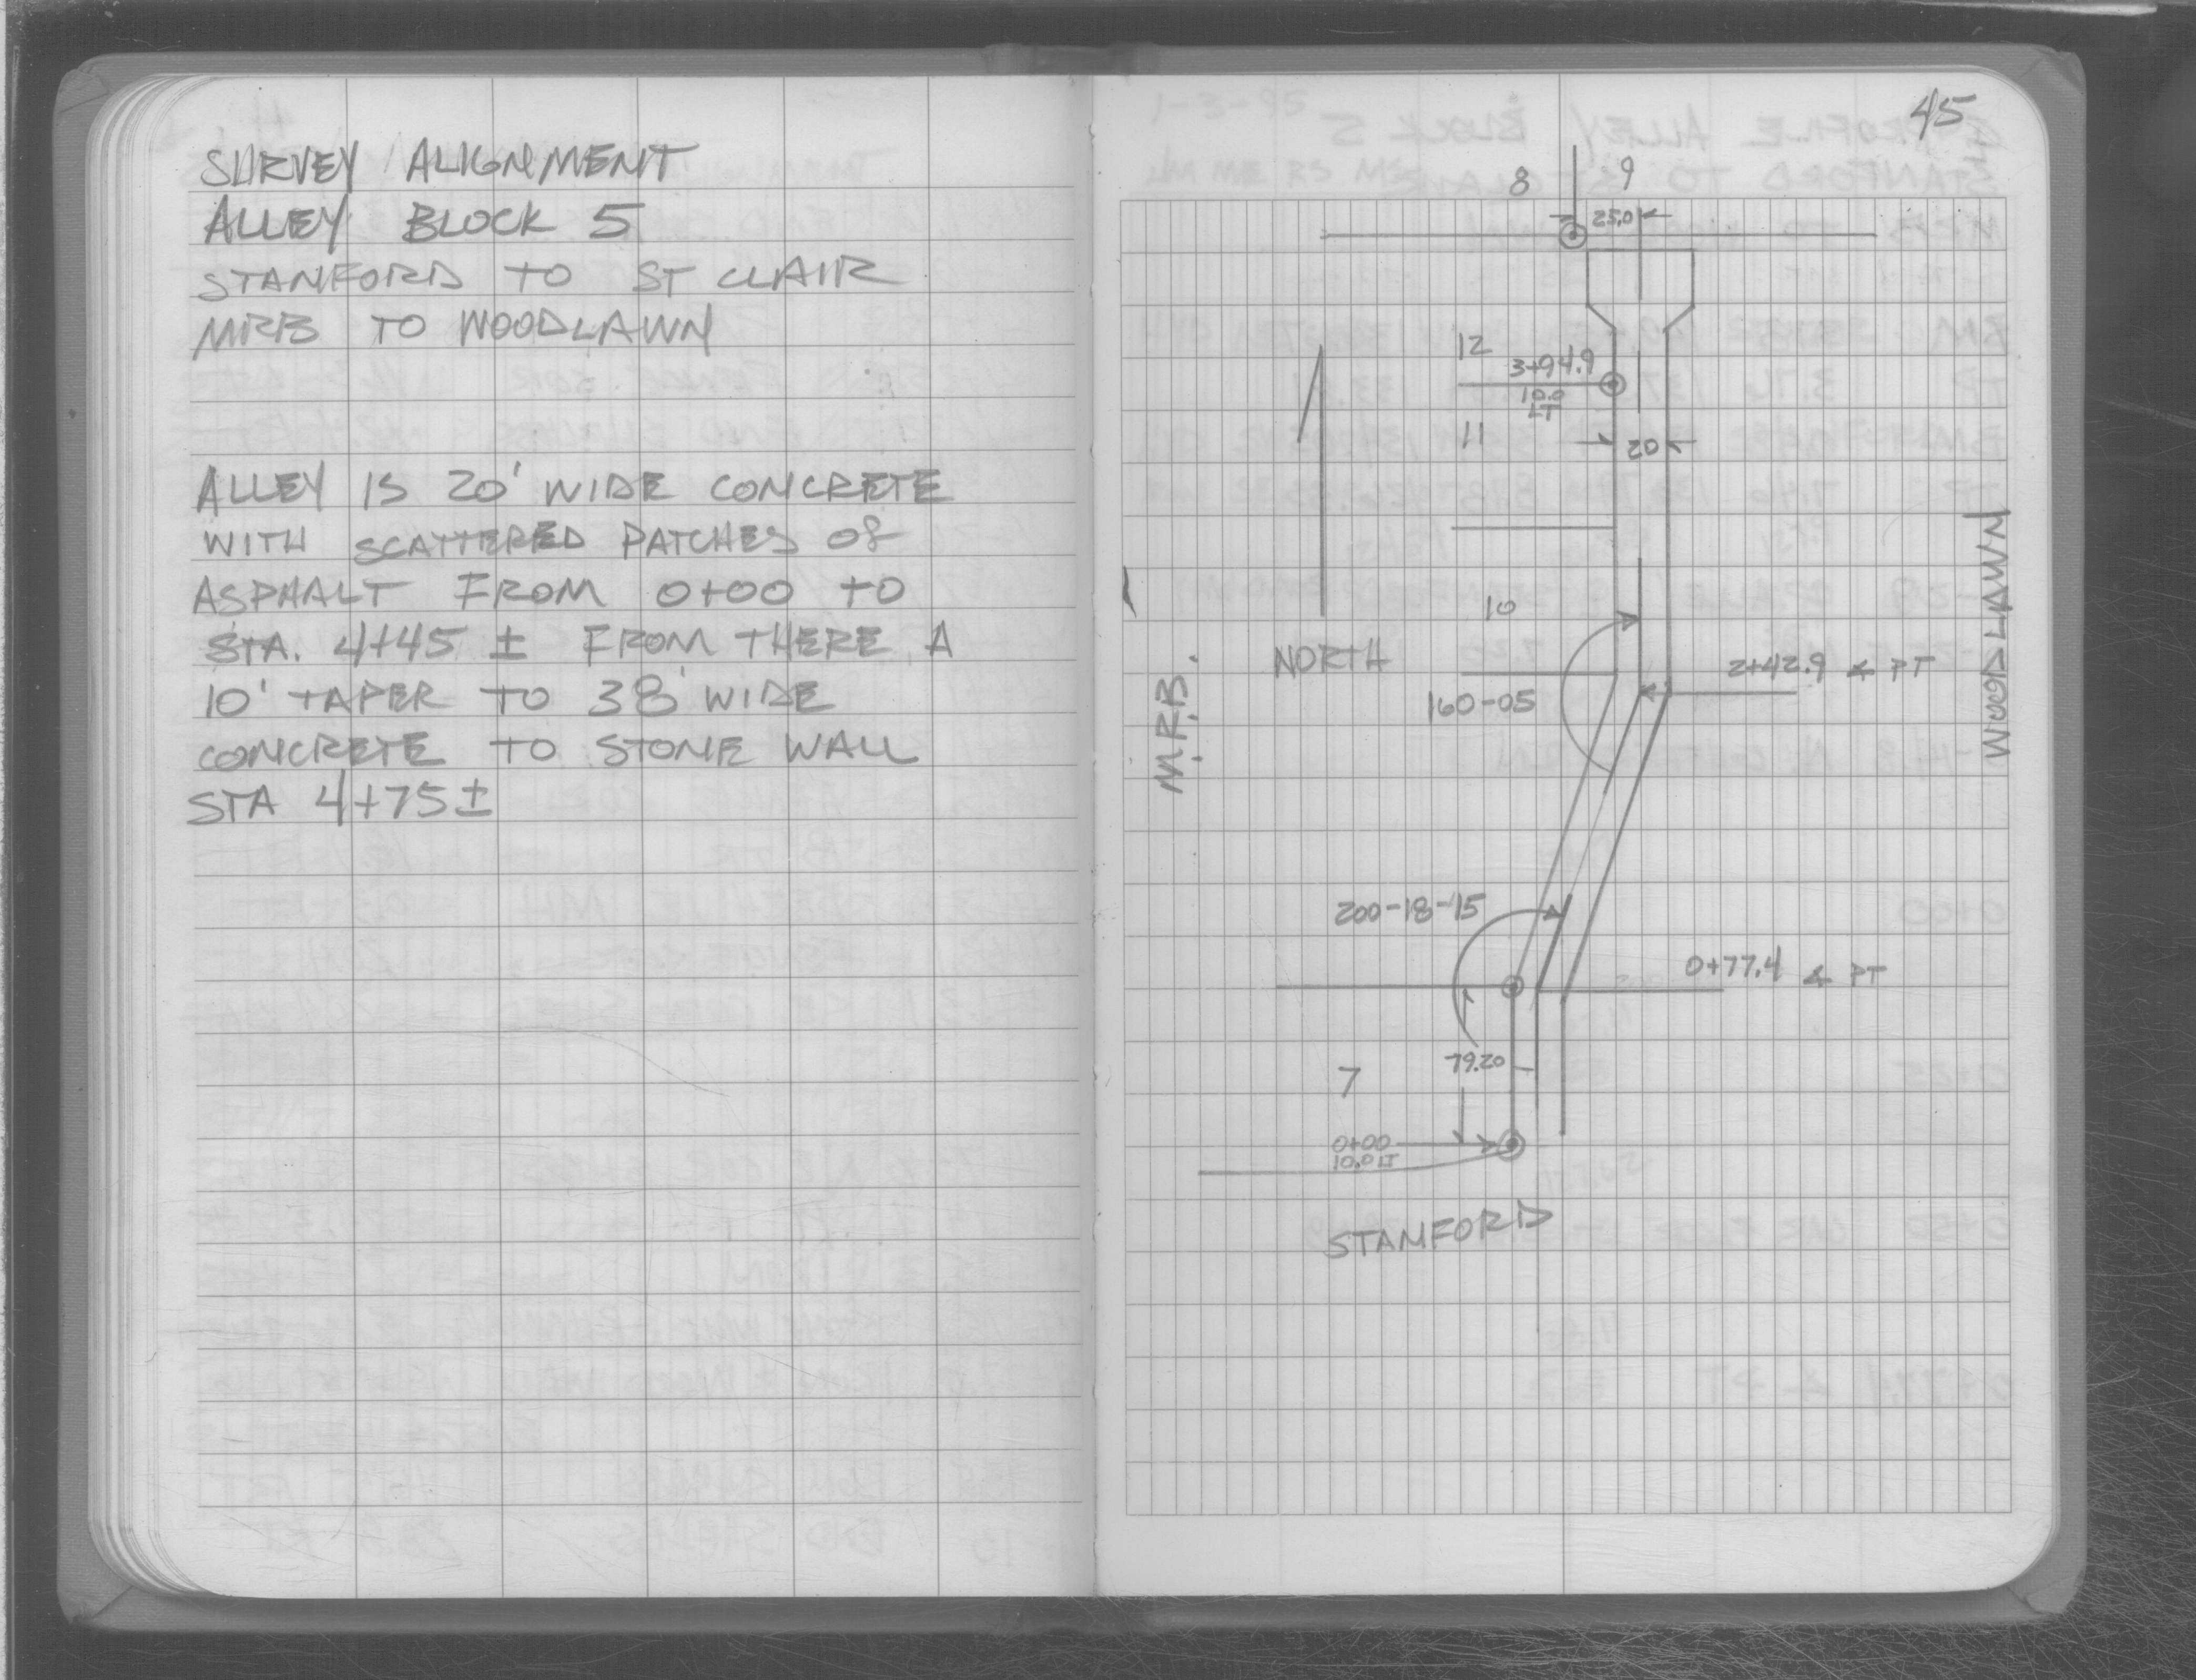 SURVEY ALIGNMENT
ALLEY BLOCK 5
STANFORD TO ST CLAIR
MRB TO WOODLAWN
ALLEY IS 20' WIDE CONCRETE
WITH SCATTERED PATCHES OF
ASPHALT FROM 0+00 TO
STA. 4+45 ± FROM THERE A
10' TAPER TO 38' WIDE
CONCRETE TO STONE WALL
STA 4+75±
45
8 9
25.0
12
3+94.9
10.0
LT
11
20
10
NORTH
2+42.9 ∡ PT
160-05
M.R.B.
WOODLAWN
200-18-15
0+77.4 ∡ PT
79.20
7
0+00
10.0 LT
STANFORD